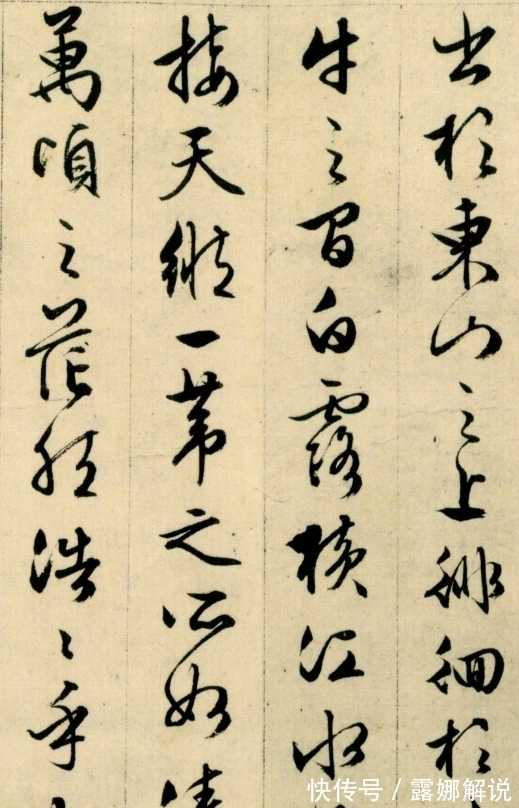 出於東山之上徘徊於
牛之間白露橫江水
接天縱一葦之所如凌
萬頃之茫然浩〻乎
快传号/露娜解说